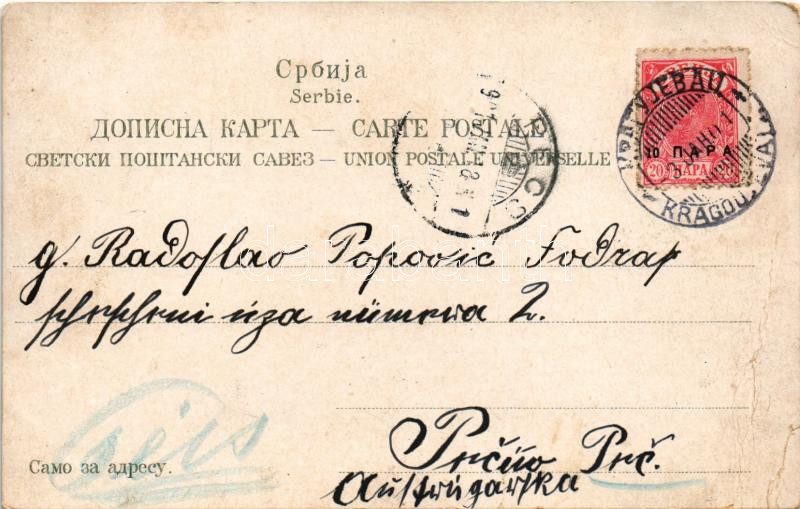 Србија
Serbie.
ДОПИСНА КАРТА — CARTE POSTALE
СВЕТСКИ ПОШТАНСКИ САВЕЗ — UNION POSTALE UNIVERSELLE
10 ПАРА
20 ПАРА 20
KRAGOU
PÉCS
g. Radoslav Popović Fodraf
úza númera 2.
Peč.
Само за адресу.
Austrúgarska